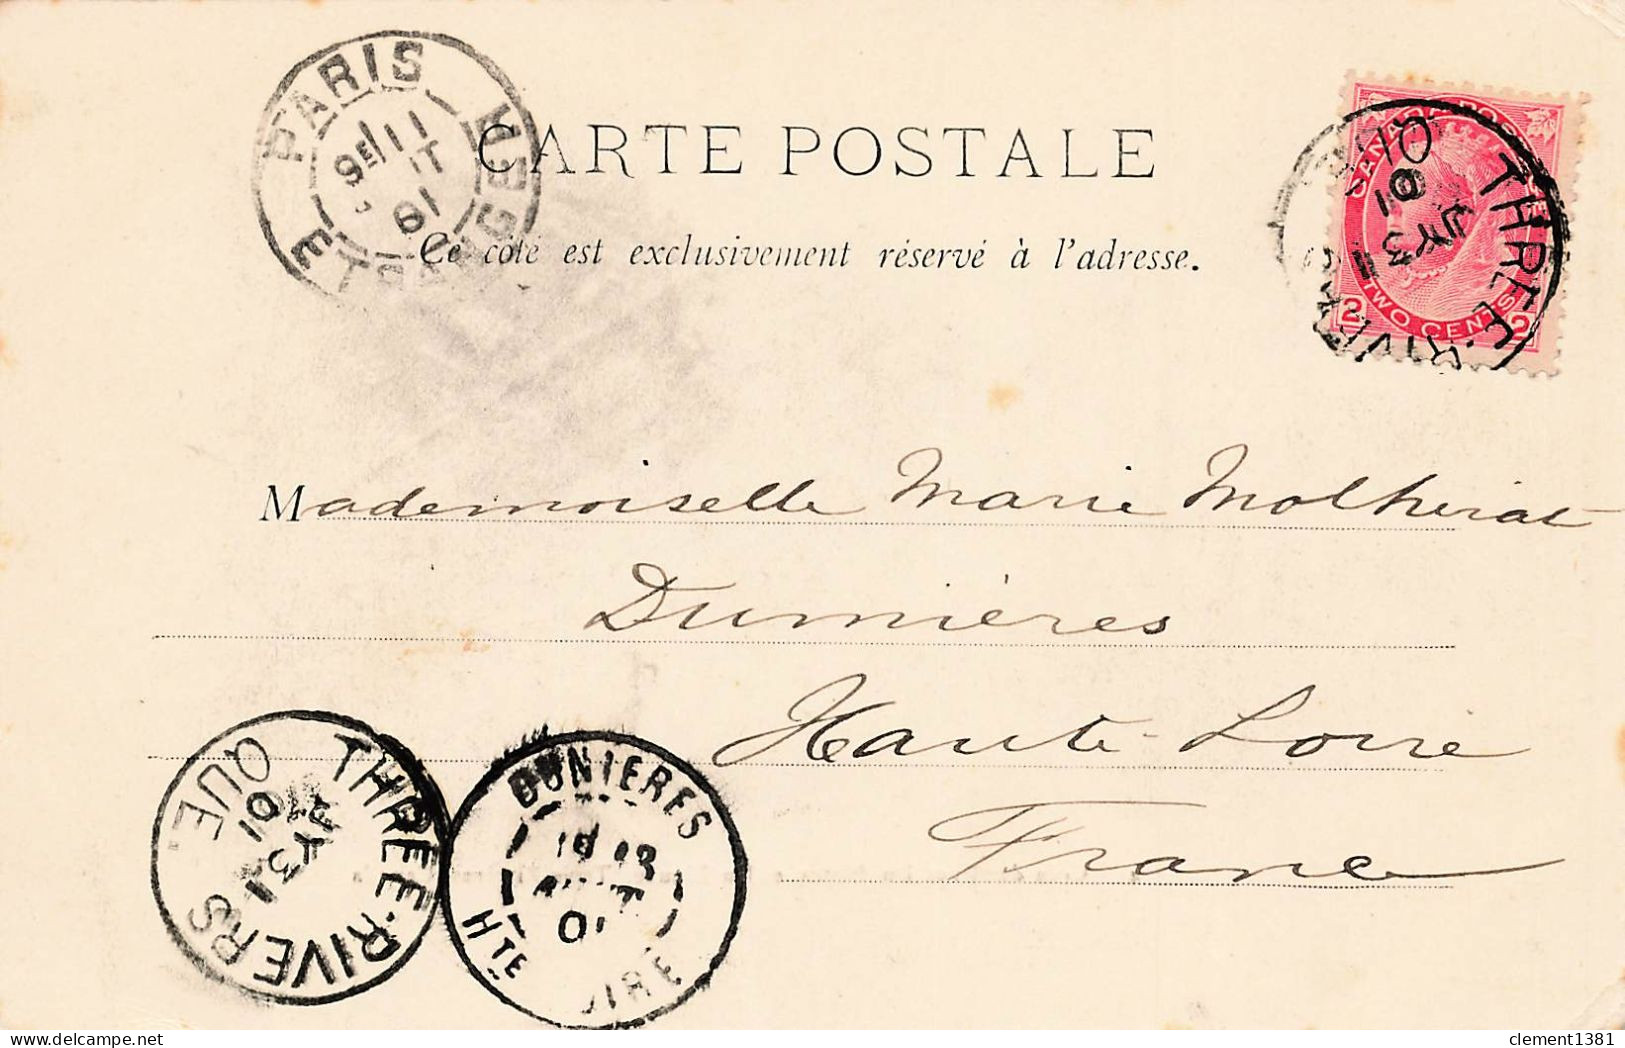 PARIS ETRANGER
9E 11
T
01
CARTE POSTALE
Ce côté est exclusivement réservé à l'adresse.
CANADA POSTAGE
2 TWO CENTS 2
THREE-RIVERS
JY 31
01
Mademoiselle Marie Molherat
Dunières
Haute-Loire
France
THREE-RIVERS QUE.
JY 31
01
DUNIERES
Hte LOIRE
01
clement1381